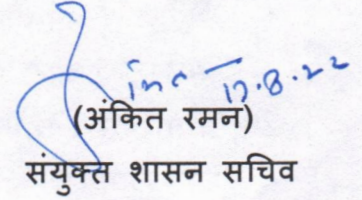 17.8.22
(अंकित रमन)
संयुक्त शासन सचिव